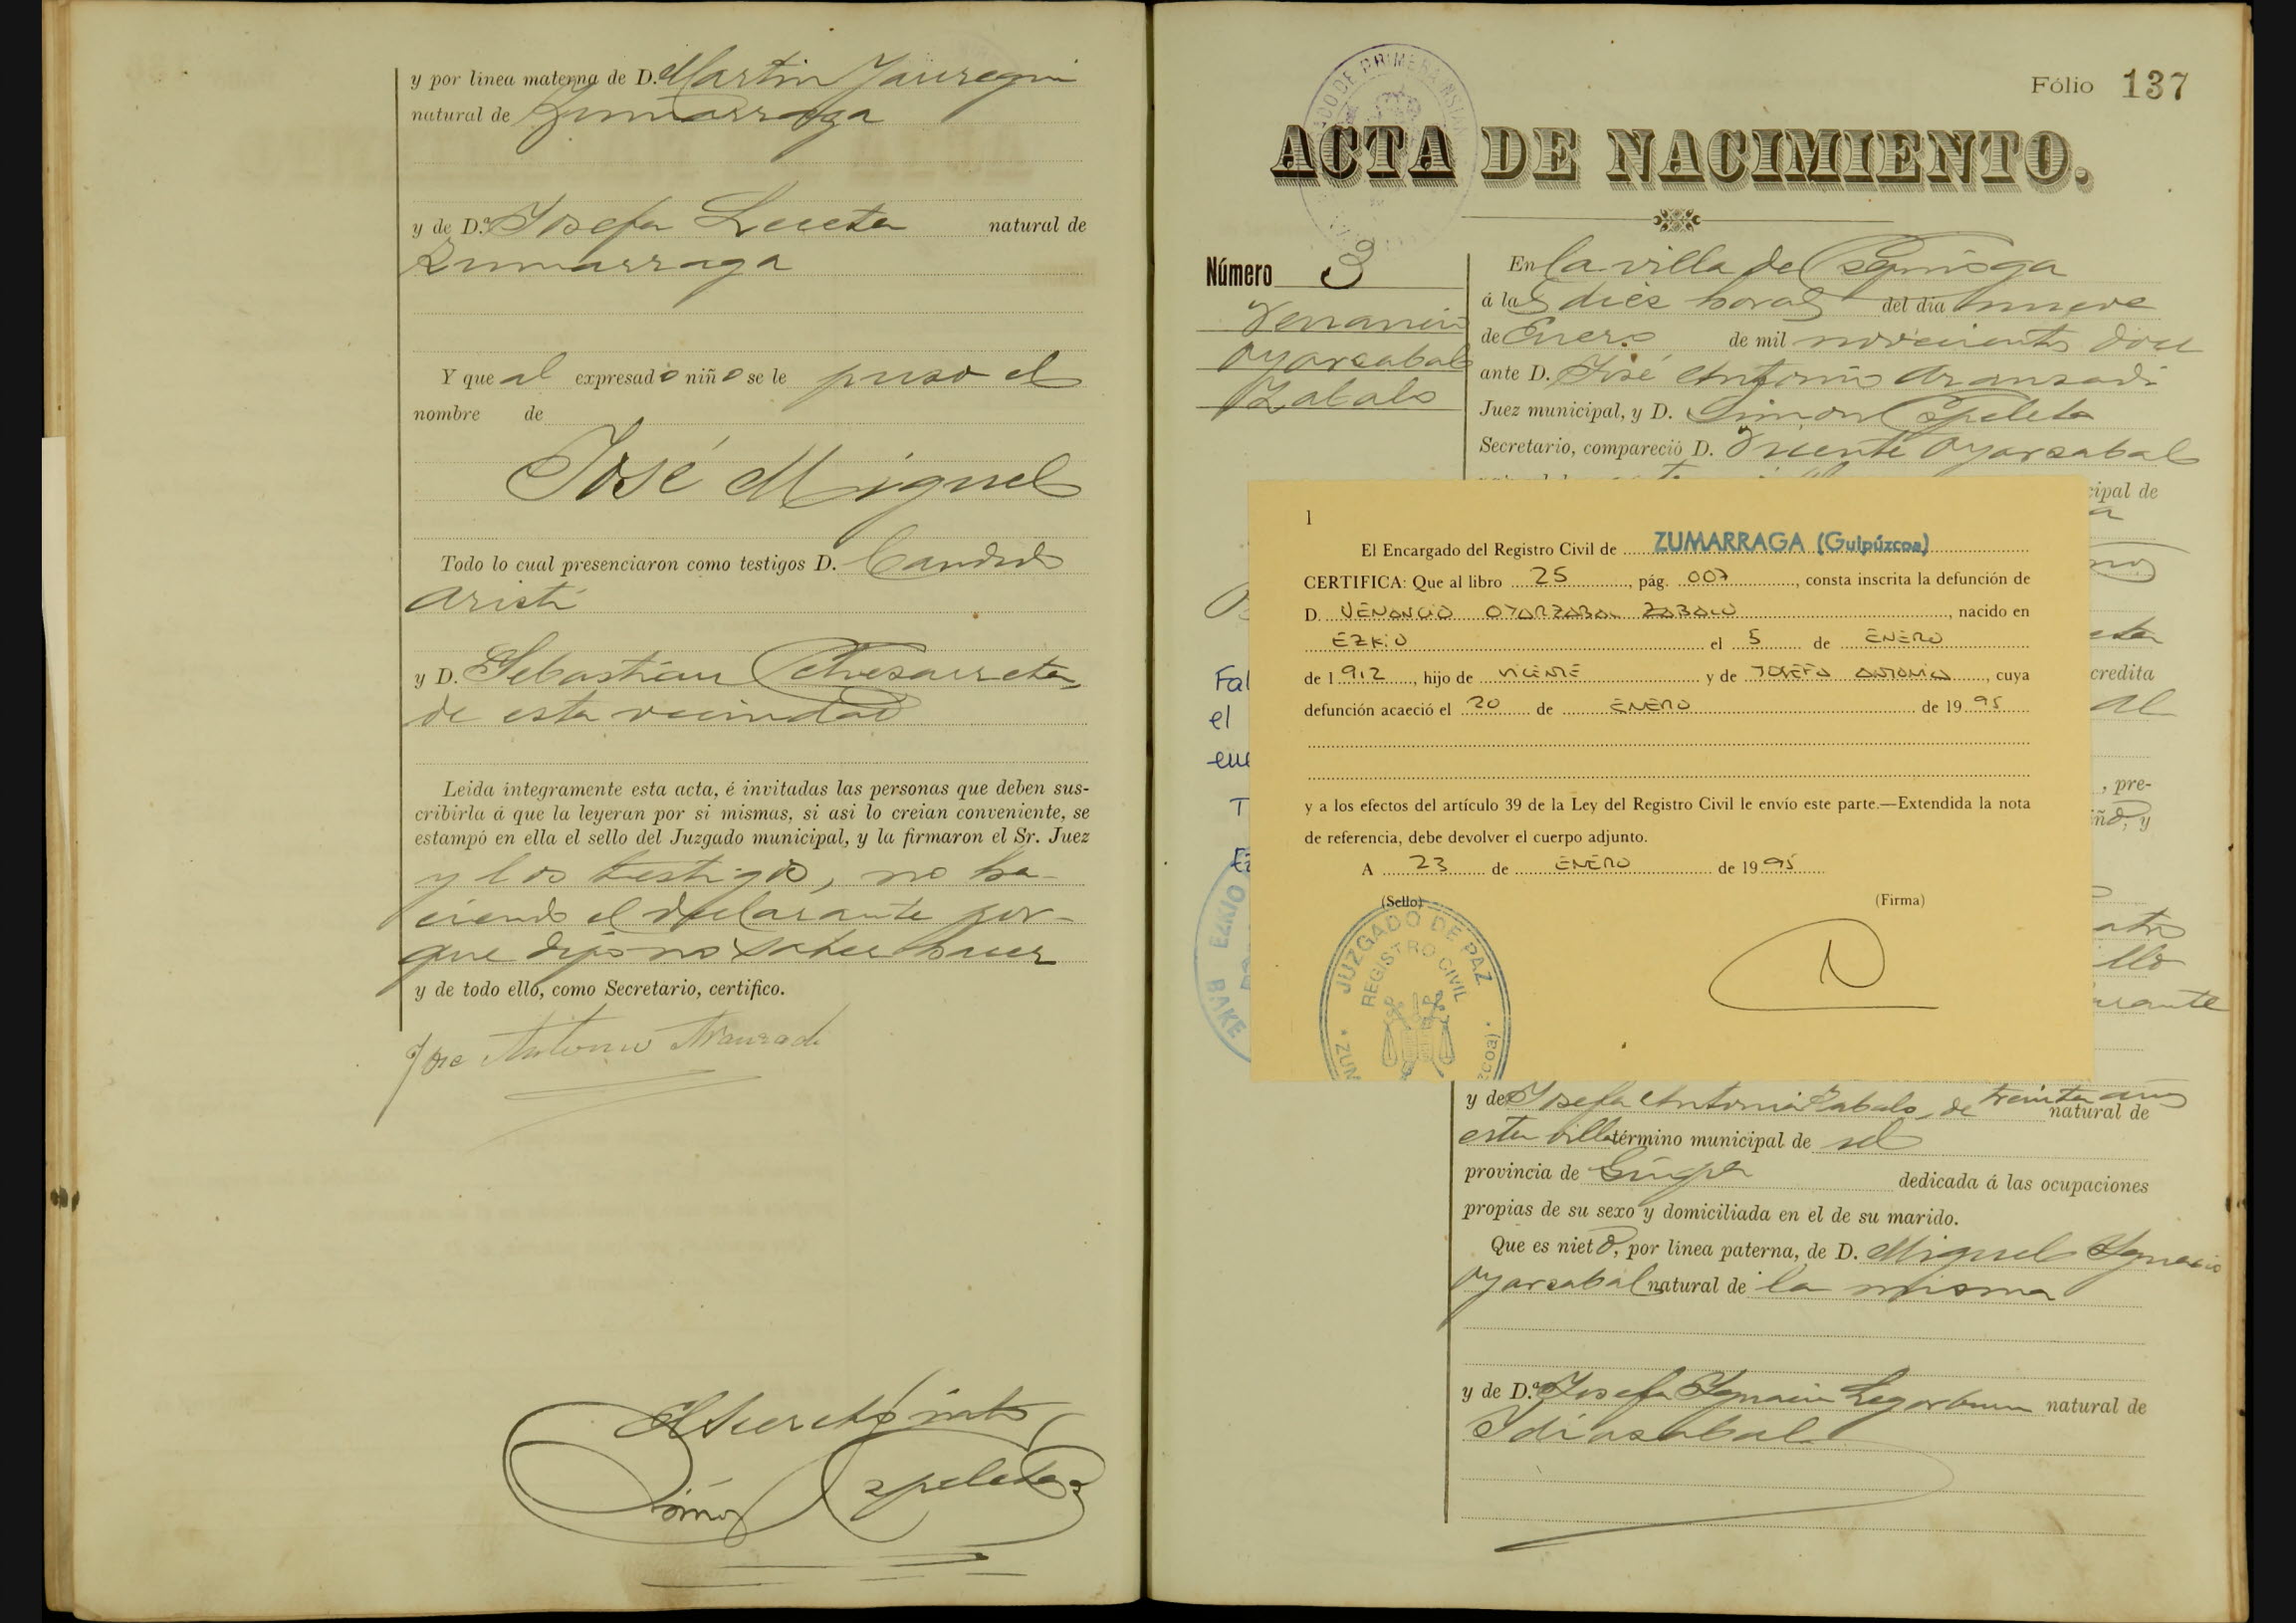 y por linea materna de D. Martin Jauregui
natural de Zumarraga
y de D.ª Josefa Leceta natural de
Zumarraga
Y que al expresado niño se le puso el
nombre de
José Miguel
Todo lo cual presenciaron como testigos D. Candido
Aristi
y D. Sebastian Echesarreta,
de esta vecindad
Leida integramente esta acta, é invitadas las personas que deben sus-
cribirla á que la leyeran por si mismas, si asi lo creian conveniente, se
estampó en ella el sello del Juzgado municipal, y la firmaron el Sr. Juez
y los testigos, no ha-
ciendo el declarante por-
que dijo no saber hacer
y de todo ello, como Secretario, certifico.
Jose Antonio Aranzadi
El Secretario
Simon Ezpeleta
Fólio 137
ACTA DE NACIMIENTO.
Número 3
Venancio
Oyarzabal
Zabalo
En la villa de Ezquioga
á las diez horas del dia nueve
de Enero de mil novecientos doce
ante D. José Antonio Aranzadi
Juez municipal, y D. Simon Ezpeleta
Secretario, compareció D. Vicente Oyarzabal
cipal de
1
El Encargado del Registro Civil de ZUMARRAGA (Guipúzcoa)
CERTIFICA: Que al libro 25, pág. 007, consta inscrita la defunción de
D. VENANCIO OYARZABAL ZABALO, nacido en
EZKIO el 5 de ENERO
de 1912, hijo de VICENTE y de JOSEFA ANTONIA, cuya
defunción acaeció el 20 de ENERO de 1995
y a los efectos del artículo 39 de la Ley del Registro Civil le envío este parte.—Extendida la nota
de referencia, debe devolver el cuerpo adjunto.
A 23 de ENERO de 1995
(Sello) (Firma)
JUZGADO DE PAZ
REGISTRO CIVIL
Fal
el
ene
T
Ez
EZKIO
BAKE
credita
al
, pre-
ño, y
llo
y de Josefa Antonia Zabalo, de treinta años natural de
esta villa término municipal de id
provincia de Guipa dedicada á las ocupaciones
propias de su sexo y domiciliada en el de su marido.
Que es nieto, por linea paterna, de D. Miguel Ygnacio
Oyarzabal natural de la misma
y de D.ª Josefa Ygnacia Legorburu natural de
Idiazabal